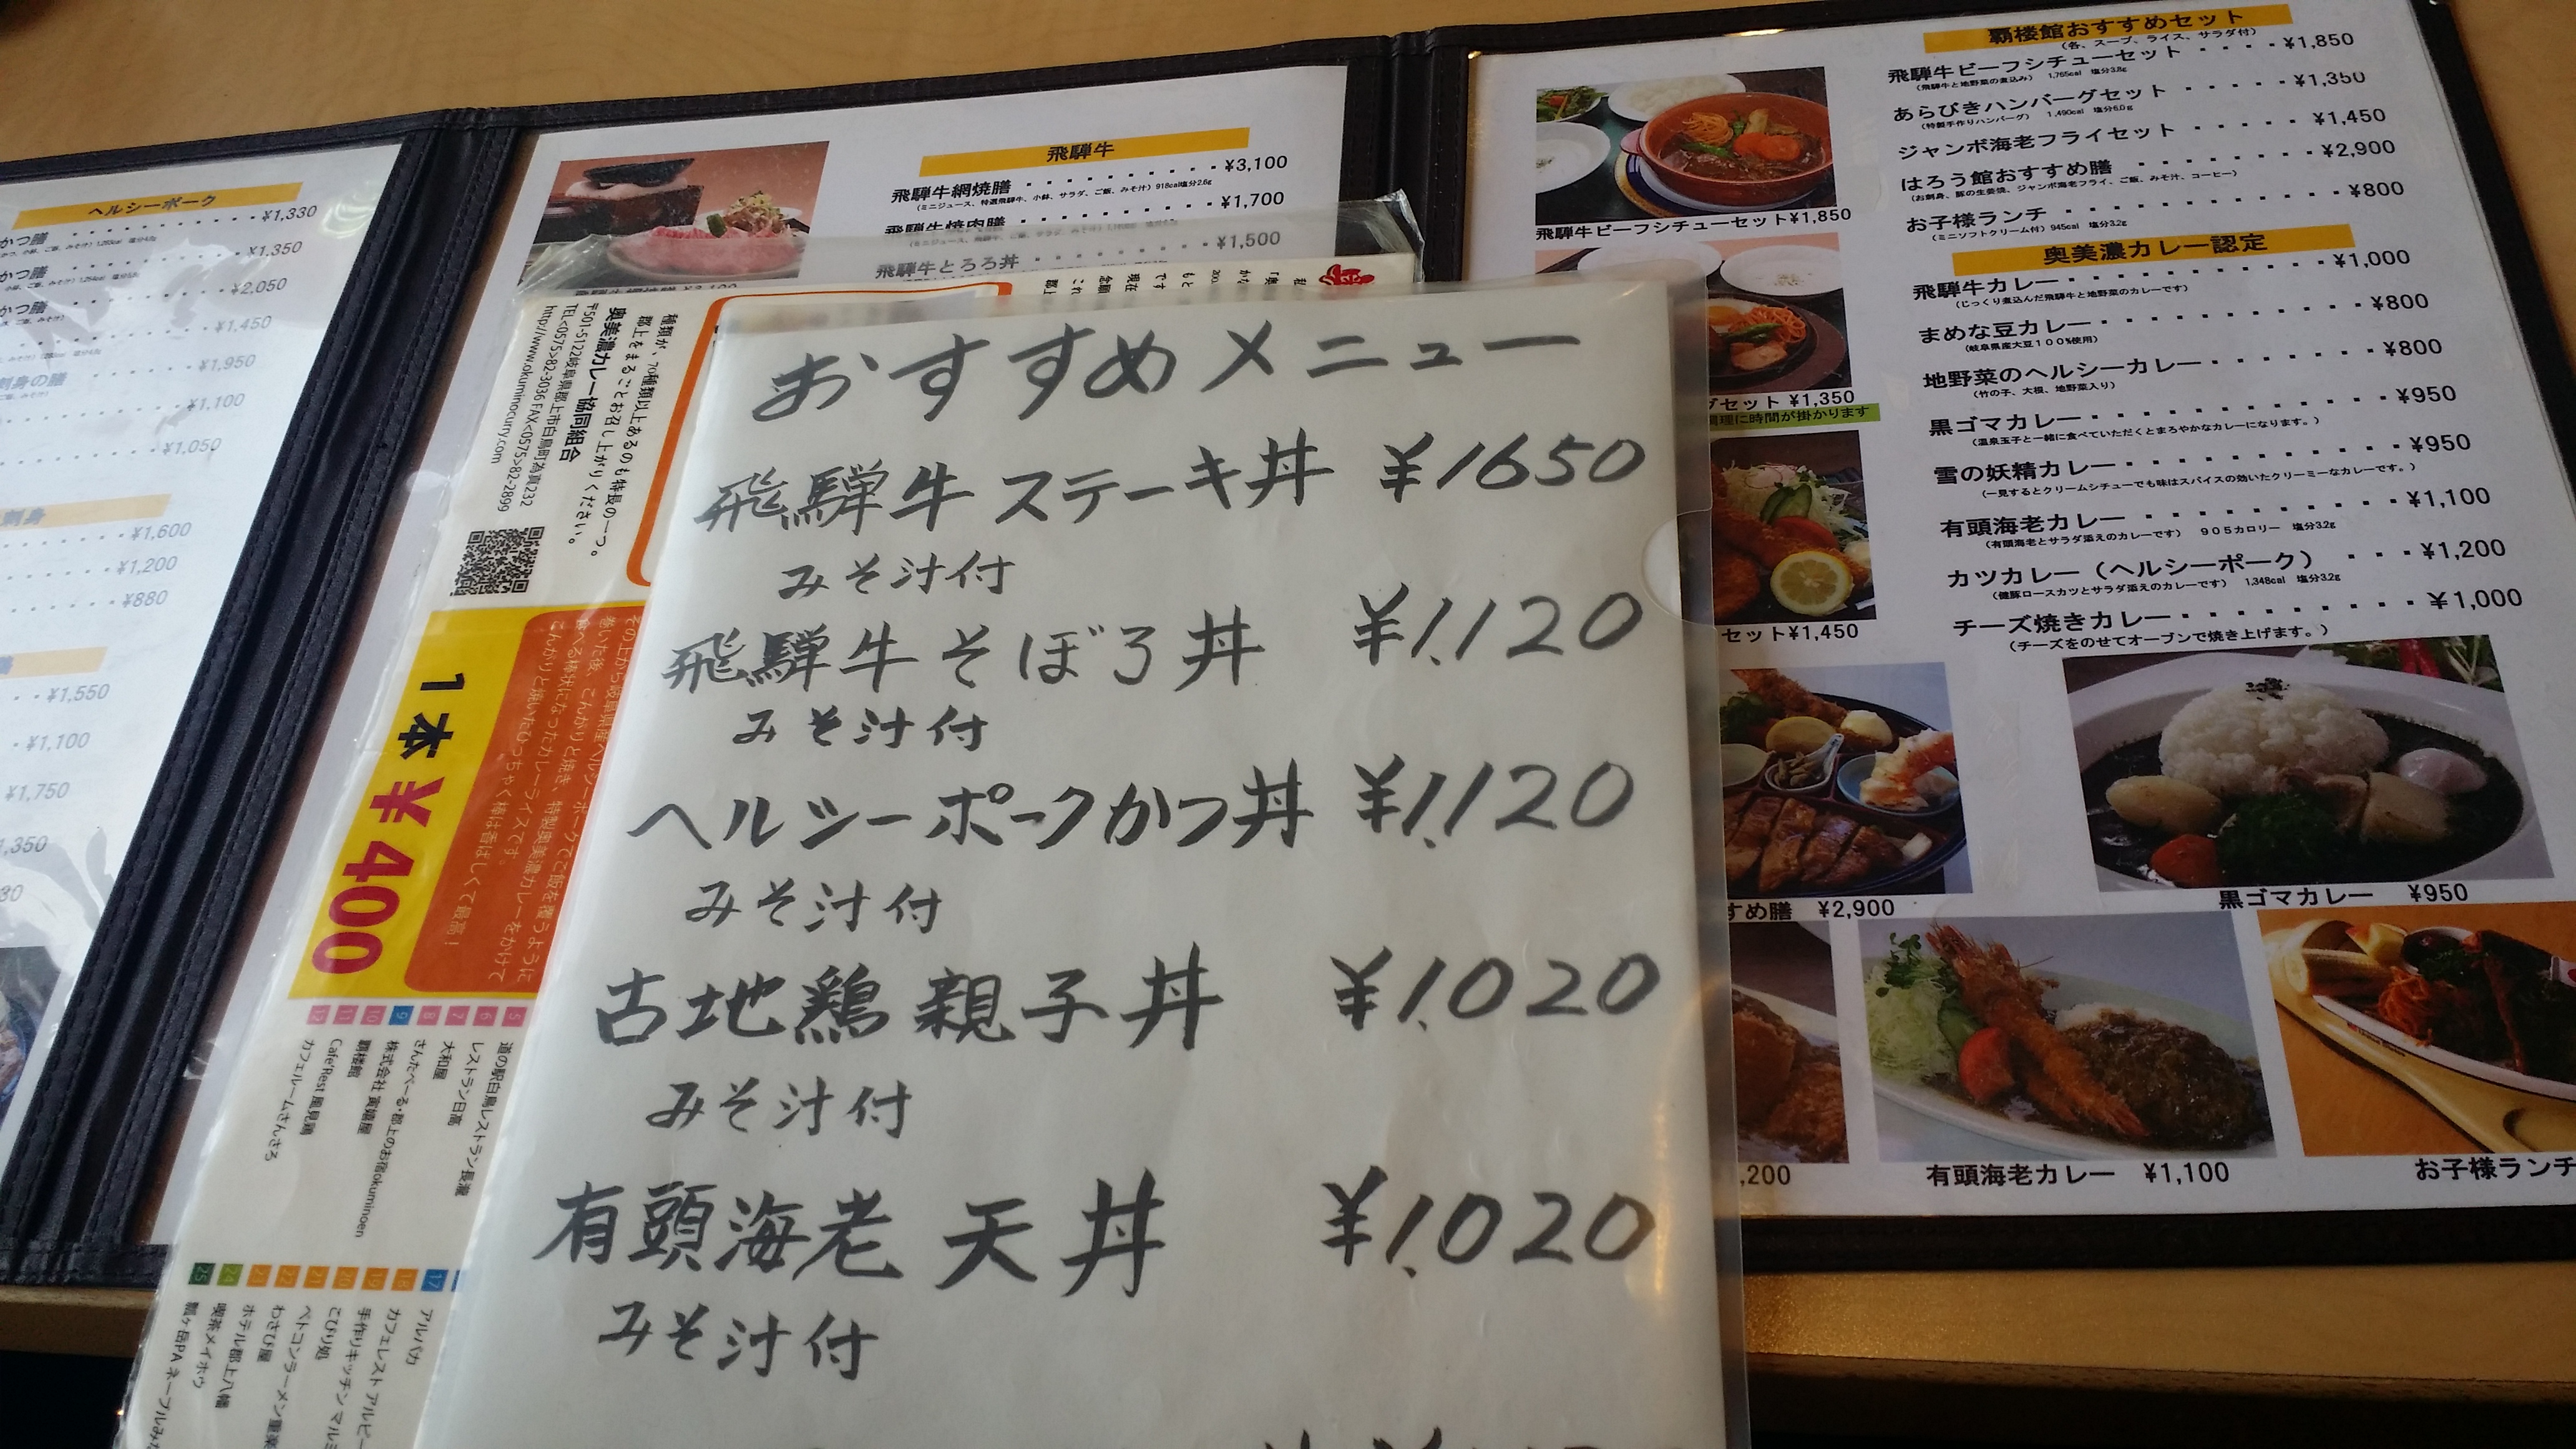 ヘルシーポーク
¥1,330
かつ膳
¥1,350
かつ膳
¥2,050
かつ膳
¥1,450
¥1,950
刺身の膳
¥1,100
¥1,050
刺身
¥1,600
¥1,200
¥880
¥1,550
¥1,100
¥1,750
飛騨牛
飛騨牛網焼膳 ¥3,100
(ミニジュース、特選飛騨牛、小鉢、サラダ、ご飯、みそ汁) 918cal塩分2.6g
飛騨牛焼肉膳 ¥1,700
飛騨牛とろろ丼 ¥1,500
種類が、70種類以上あるのも特長の一つ。
郡上をまるごとお召し上がりください。
奥美濃カレー協同組合
〒501-5122岐阜県郡上市白鳥町為真232
TEL<0575>82-3036 FAX<0575>82-2899
http://www.okuminocurry.com
巻いた後、こんがりと焼き、特製奥美濃カレーをかけて
食べる棒状になったカレーライスです。
こんがりと焼いためっちゃく棒は香ばしくて最高!
1本¥400
5 道の駅白鳥レストラン長瀧
6 レストラン日高
7 大和屋
8 さんたべーる・郡上のお宿okuminoen
10 覇楼館
11 Cafe'Rest 風見鶏
12 カフェルームさんさろ
17 アルパカ
20 こびり処
22 わさび屋
23 ホテル郡上八幡
24 喫茶メイホウ
おすすめメニュー
飛騨牛ステーキ丼 ¥1650
みそ汁付
飛騨牛そぼろ丼 ¥1,120
みそ汁付
ヘルシーポークかつ丼 ¥1,120
みそ汁付
古地鶏親子丼 ¥1,020
みそ汁付
有頭海老天丼 ¥1,020
みそ汁付
覇楼館おすすめセット
(各、スープ、ライス、サラダ付)
飛騨牛ビーフシチューセット ¥1,850
(飛騨牛と地野菜の煮込み) 1,765cal 塩分3.8g
あらびきハンバーグセット ¥1,350
(特製手作りハンバーグ) 1,490cal 塩分6.0g
ジャンボ海老フライセット ¥1,450
はろう館おすすめ膳 ¥2,900
(お刺身、豚の生姜焼、ジャンボ海老フライ、ご飯、みそ汁、コーヒー)
お子様ランチ ¥800
(ミニソフトクリーム付) 945cal 塩分3.2g
奥美濃カレー認定
飛騨牛カレー ¥1,000
(じっくり煮込んだ飛騨牛と地野菜のカレーです)
まめな豆カレー ¥800
(岐阜県産大豆100%使用)
地野菜のヘルシーカレー ¥800
(竹の子、大根、地野菜入り)
黒ゴマカレー ¥950
(温泉玉子と一緒に食べていただくとまろやかなカレーになります。)
雪の妖精カレー ¥950
(一見するとクリームシチューでも味はスパイスの効いたクリーミーなカレーです。)
有頭海老カレー ¥1,100
(有頭海老とサラダ添えのカレーです) 905カロリー 塩分3.2g
カツカレー(ヘルシーポーク) ¥1,200
(健豚ロースカツとサラダ添えのカレーです) 1,348cal 塩分3.2g
チーズ焼きカレー ¥1,000
(チーズをのせてオーブンで焼き上げます。)
飛騨牛ビーフシチューセット¥1,850
グセット ¥1,350
調理に時間が掛かります
セット¥1,450
すめ膳 ¥2,900
黒ゴマカレー ¥950
,200
有頭海老カレー ¥1,100
お子様ランチ